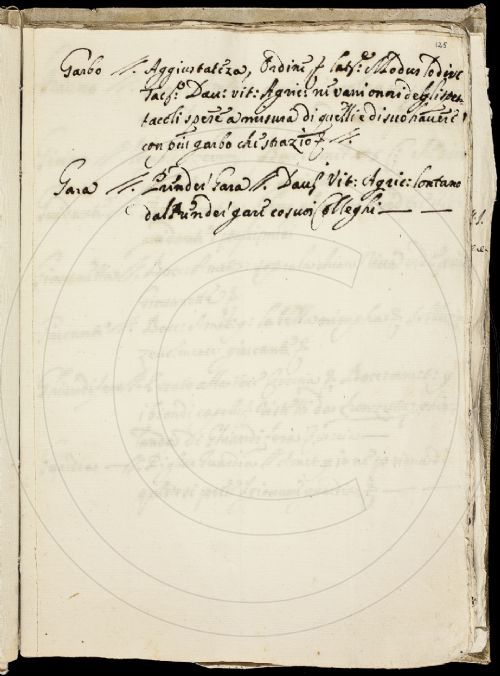 125
Garbo N. Aggiustatezza, Ordine lat: Modus Todive
Tac: Dav: vit: Agric: ne vani onori degli spet-
tacoli spese a misura di quelli e di suo havere
con più garbo che strazio N.
Gara N. Dav: Vit: Agric: lontano
dal gare co suoi Colleghi — —